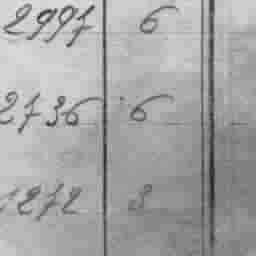 2997 6
2736 6
1272 3